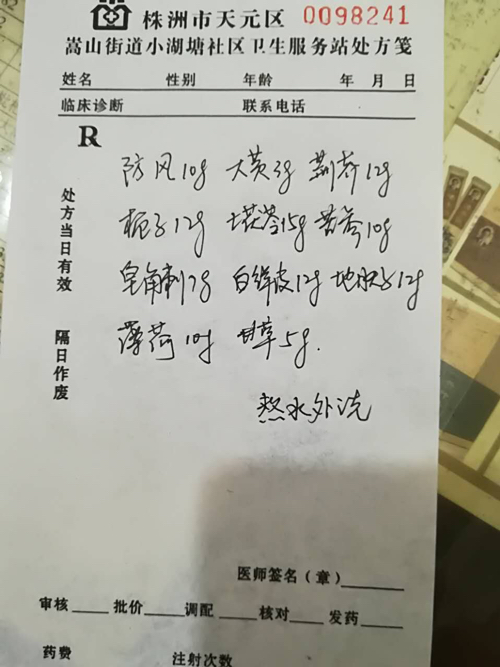 株洲市天元区 0098241
嵩山街道小湖塘社区卫生服务站处方笺
姓名 性别 年龄 年 月 日
临床诊断 联系电话
R
处方当日有效 隔日作废
防风10g 大黄3g 荆芥12g
栀子12g 土茯苓15g 苦参10g
皂角刺12g 白鲜皮12g 地肤子12g
薄荷10g 甘草5g.
熬水外洗
医师签名（章）
审核 批价 调配 核对 发药
药费 注射次数